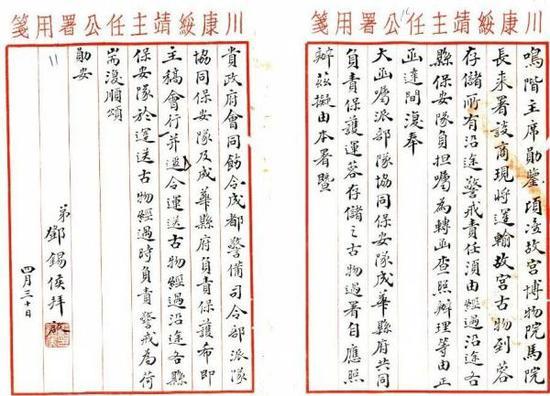 川康綏靖主任公署用箋
鳴階主席勛鑒頃准故宮博物院馬院
長來署談商現將運輸故宮古物到蓉
存儲所有沿途警戒責任須由經過沿途各
縣保安隊負担囑為轉函查照辦理等由正
函達間復奉
大函囑派部隊協同保安隊成華縣府共同
負責保護運蓉存儲之古物過署自應照
辦茲擬由本署暨
川康綏靖主任公署用箋
貴政府會同飭令成都警備司令部派隊
協同保安隊及成華縣府負責保護希即
主稿會行并逕令運送古物經過沿途各縣
保安隊於運送古物經過時負責警戒為荷
耑復順頌
勛安
弟鄧錫侯拜啟
四月三十日